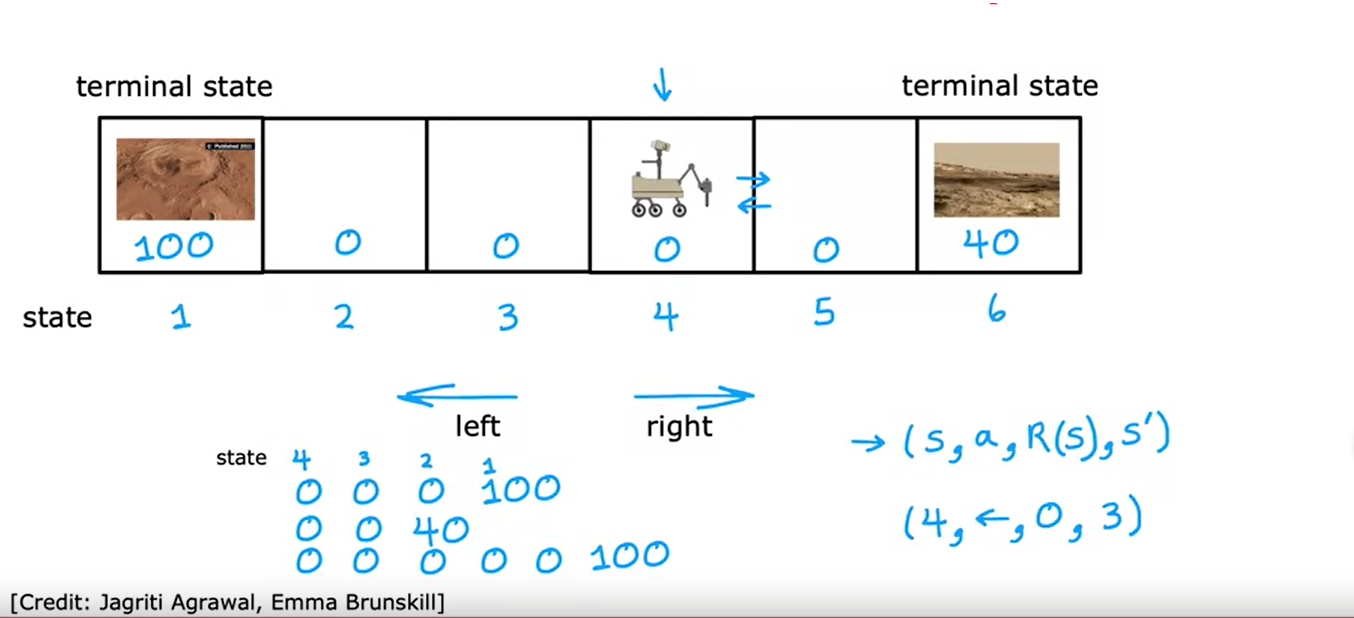 terminal state terminal state
↓
→
←
100 0 0 0 0 40
state 1 2 3 4 5 6
← →
left right
state 4 3 2 1
0 0 0 100
0 0 40
0 0 0 0 0 100
→ (s, a, R(s), s')
(4, ←, 0, 3)
[Credit: Jagriti Agrawal, Emma Brunskill]